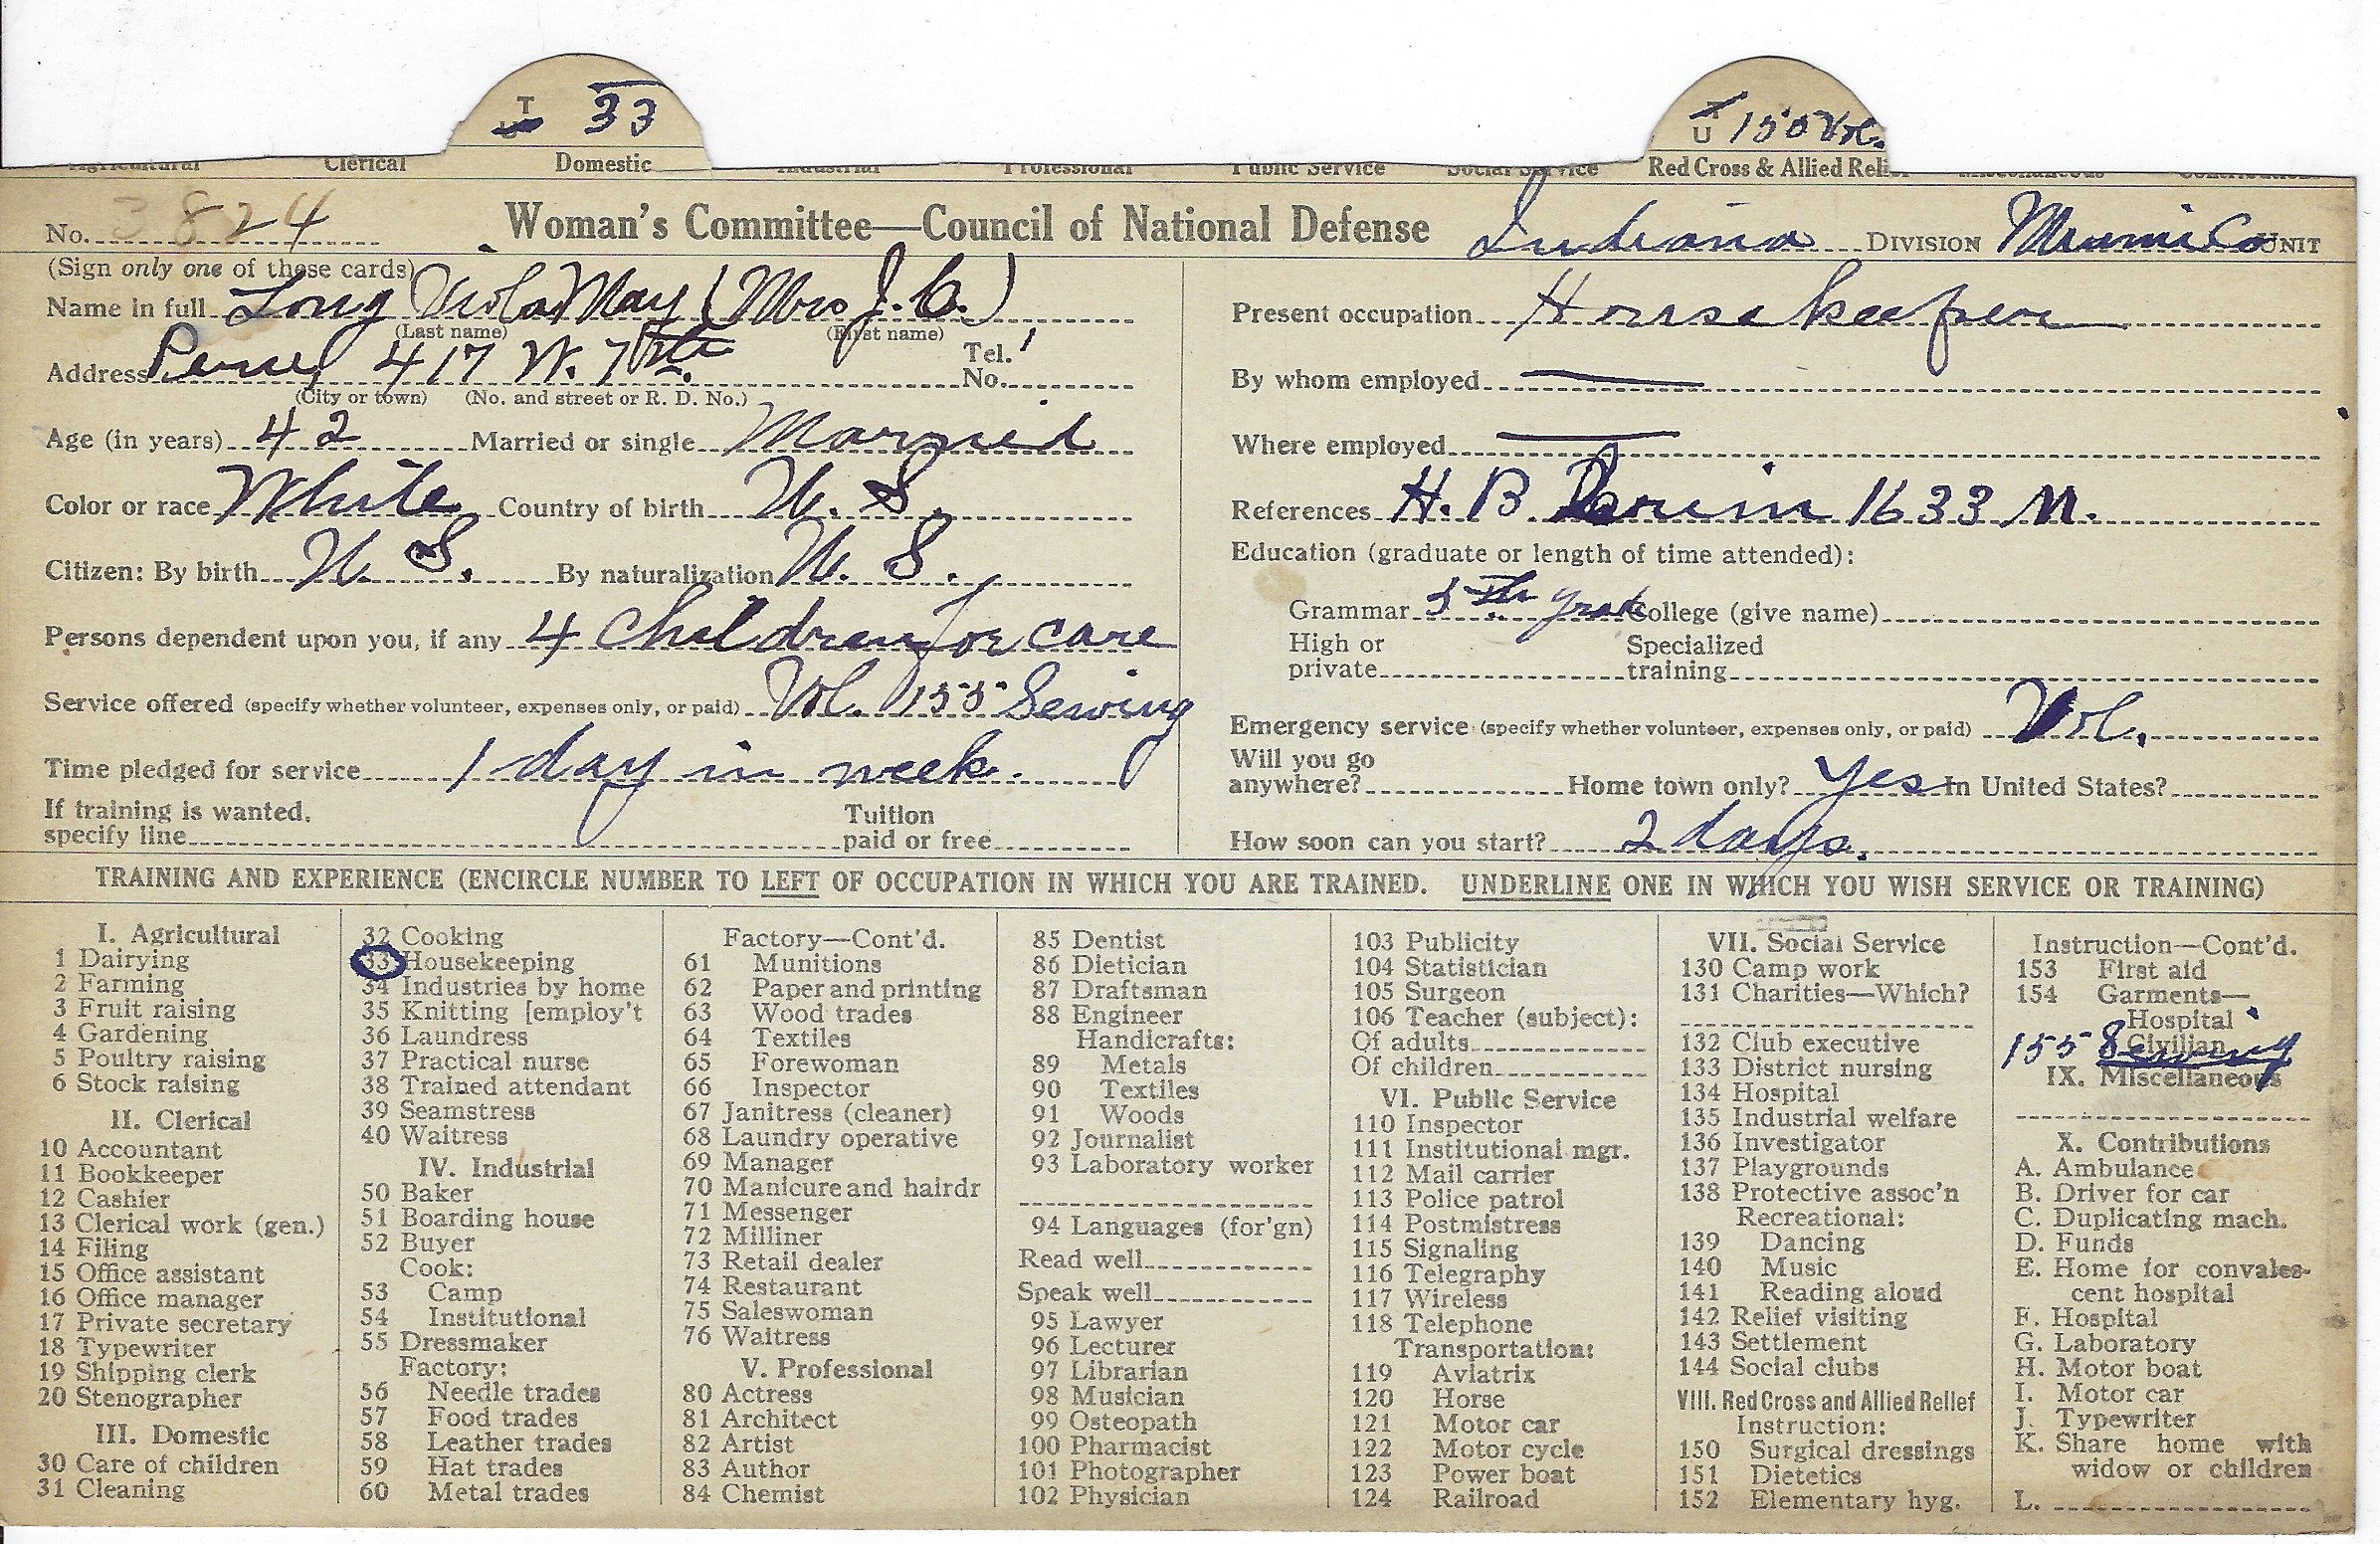 T
U 33
T
U 155 Vol.
Clerical Domestic Public Service Red Cross & Allied Reli
No. 3824 Woman's Committee—Council of National Defense Indiana DIVISION Miami Co UNIT
(Sign only one of these cards)
Name in full Long Viola May (Mrs J. C.)
(Last name) (First name)
Address Peru, 417 W. 7th. Tel. No.
(City or town) (No. and street or R. D. No.)
Age (in years) 42 Married or single Married
Color or race White Country of birth U. S.
Citizen: By birth U. S. By naturalization U. S.
Persons dependent upon you, if any 4 Children for care
Service offered (specify whether volunteer, expenses only, or paid) Vol. 155 Sewing
Time pledged for service 1 day in week.
If training is wanted, specify line Tuition paid or free
Present occupation Housekeeper
By whom employed —
Where employed —
References H. B. 1633 M.
Education (graduate or length of time attended):
Grammar 5th grade College (give name)
High or private Specialized training
Emergency service (specify whether volunteer, expenses only, or paid) Vol.
Will you go anywhere? Home town only? Yes In United States?
How soon can you start? 2 days.
TRAINING AND EXPERIENCE (ENCIRCLE NUMBER TO LEFT OF OCCUPATION IN WHICH YOU ARE TRAINED. UNDERLINE ONE IN WHICH YOU WISH SERVICE OR TRAINING)
I. Agricultural
1 Dairying
2 Farming
3 Fruit raising
4 Gardening
5 Poultry raising
6 Stock raising
II. Clerical
10 Accountant
11 Bookkeeper
12 Cashier
13 Clerical work (gen.)
14 Filing
15 Office assistant
16 Office manager
17 Private secretary
18 Typewriter
19 Shipping clerk
20 Stenographer
III. Domestic
30 Care of children
31 Cleaning
32 Cooking
33 Housekeeping
34 Industries by home
35 Knitting [employ't
36 Laundress
37 Practical nurse
38 Trained attendant
39 Seamstress
40 Waitress
IV. Industrial
50 Baker
51 Boarding house
52 Buyer
Cook:
53 Camp
54 Institutional
55 Dressmaker
Factory:
56 Needle trades
57 Food trades
58 Leather trades
59 Hat trades
60 Metal trades
Factory—Cont'd.
61 Munitions
62 Paper and printing
63 Wood trades
64 Textiles
65 Forewoman
66 Inspector
67 Janitress (cleaner)
68 Laundry operative
69 Manager
70 Manicure and hairdr
71 Messenger
72 Milliner
73 Retail dealer
74 Restaurant
75 Saleswoman
76 Waitress
V. Professional
80 Actress
81 Architect
82 Artist
83 Author
84 Chemist
85 Dentist
86 Dietician
87 Draftsman
88 Engineer
Handicrafts:
89 Metals
90 Textiles
91 Woods
92 Journalist
93 Laboratory worker
94 Languages (for'gn)
Read well
Speak well
95 Lawyer
96 Lecturer
97 Librarian
98 Musician
99 Osteopath
100 Pharmacist
101 Photographer
102 Physician
103 Publicity
104 Statistician
105 Surgeon
106 Teacher (subject):
Of adults
Of children
VI. Public Service
110 Inspector
111 Institutional mgr.
112 Mail carrier
113 Police patrol
114 Postmistress
115 Signaling
116 Telegraphy
117 Wireless
118 Telephone
Transportation:
119 Aviatrix
120 Horse
121 Motor car
122 Motor cycle
123 Power boat
124 Railroad
VII. Social Service
130 Camp work
131 Charities—Which?
132 Club executive
133 District nursing
134 Hospital
135 Industrial welfare
136 Investigator
137 Playgrounds
138 Protective assoc'n
Recreational:
139 Dancing
140 Music
141 Reading aloud
142 Relief visiting
143 Settlement
144 Social clubs
VIII. Red Cross and Allied Relief
Instruction:
150 Surgical dressings
151 Dietetics
152 Elementary hyg.
Instruction—Cont'd.
153 First aid
154 Garments—
Hospital
Civilian
155 Sewing
IX. Miscellaneous
X. Contributions
A. Ambulance
B. Driver for car
C. Duplicating mach.
D. Funds
E. Home for convales-
cent hospital
F. Hospital
G. Laboratory
H. Motor boat
I. Motor car
J. Typewriter
K. Share home with
widow or children
L.